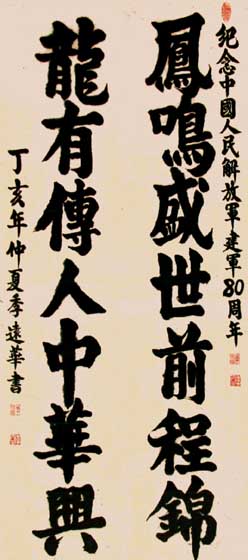 紀念中國人民解放軍建軍80周年
鳳鳴盛世前程錦
龍有傳人中華興
丁亥年仲夏季遠華書